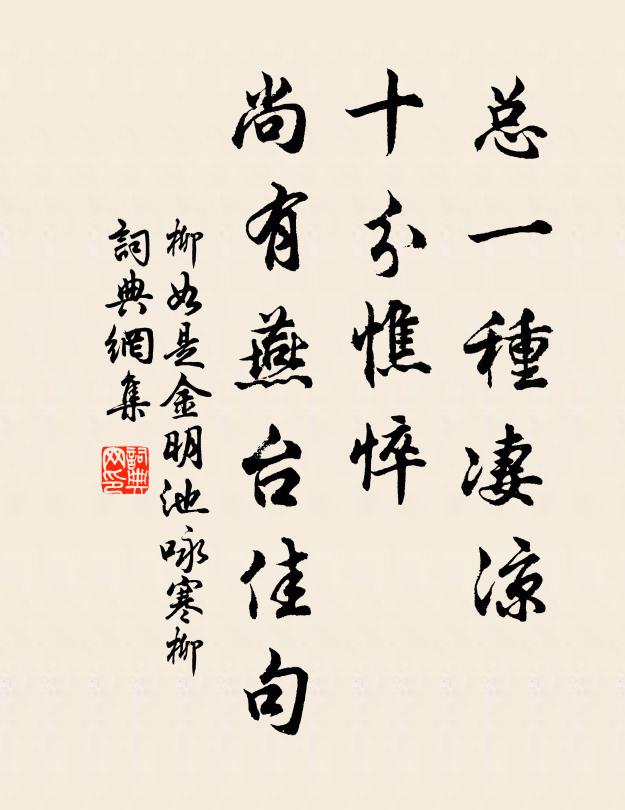 总一種凄涼
十分憔悴
尚有燕台佳句
柳如是金明池咏寒柳
詞典網集
詞典
网印